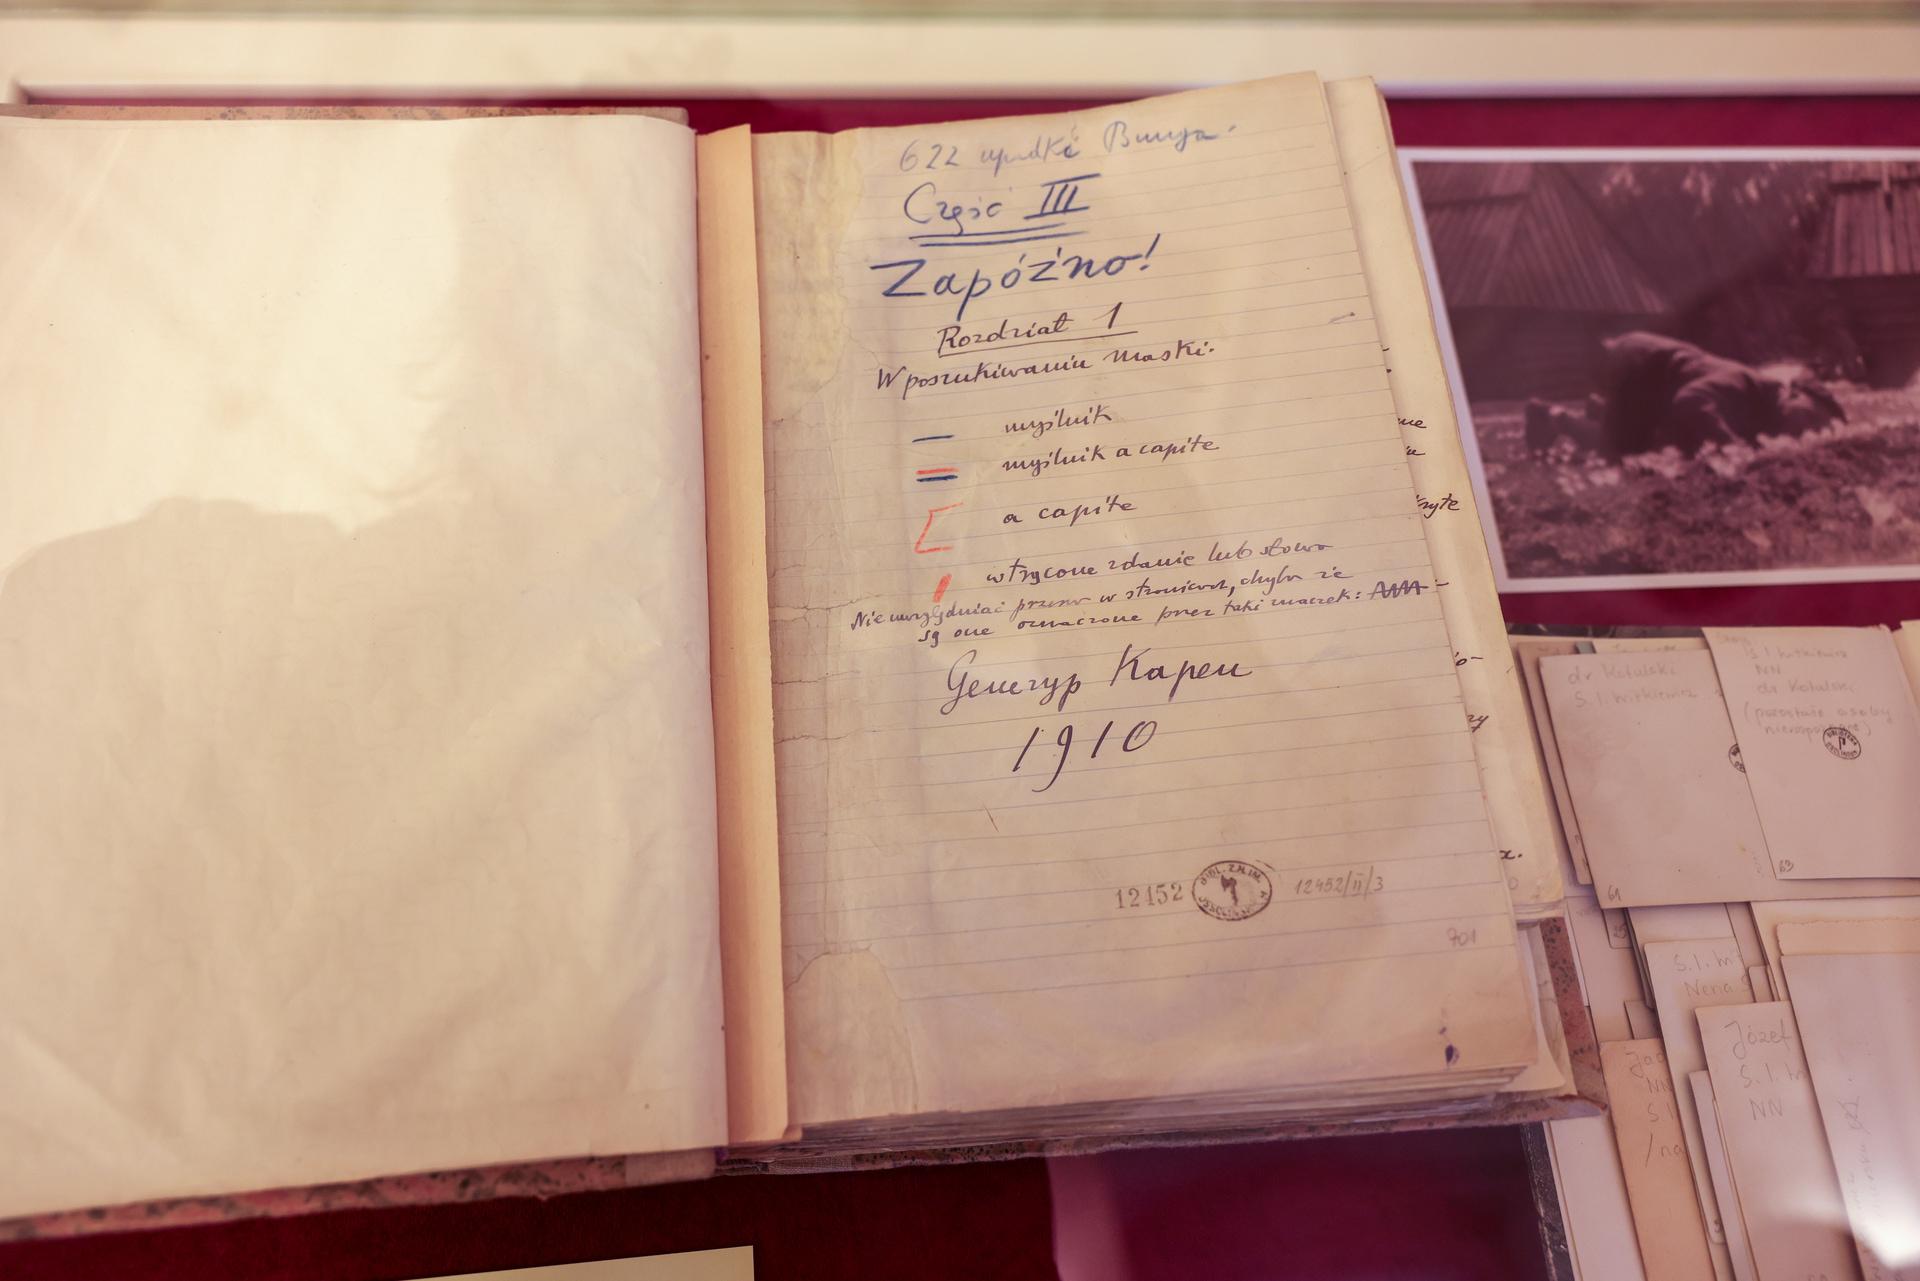 622 upadki Bunga.
Część III
Zapóźno!
Rozdział 1
W poszukiwaniu maski.
myślnik
myślnik a capite
a capite
wtrącone zdanie lub słowo
Nie uwzględniać przerw w stronicach, chyba że
są one oznaczone przez taki znaczek:
Genezyp Kapen
1910
12452 BIBL. Z.N.IM. OSSOLIŃSKICH 12452/II/3
901
me
ryte
zy
x.
dr Kotulski
S. I. Witkiewicz
61
S. I. Witkiewicz
NN
dr Kotulski
(pozostałe osoby
nierozpoznane)
BIBLIOTEKA
63
S. I. Wit
Nena S
Józef
S. I. W
NN
Jad
NN
S I
/na